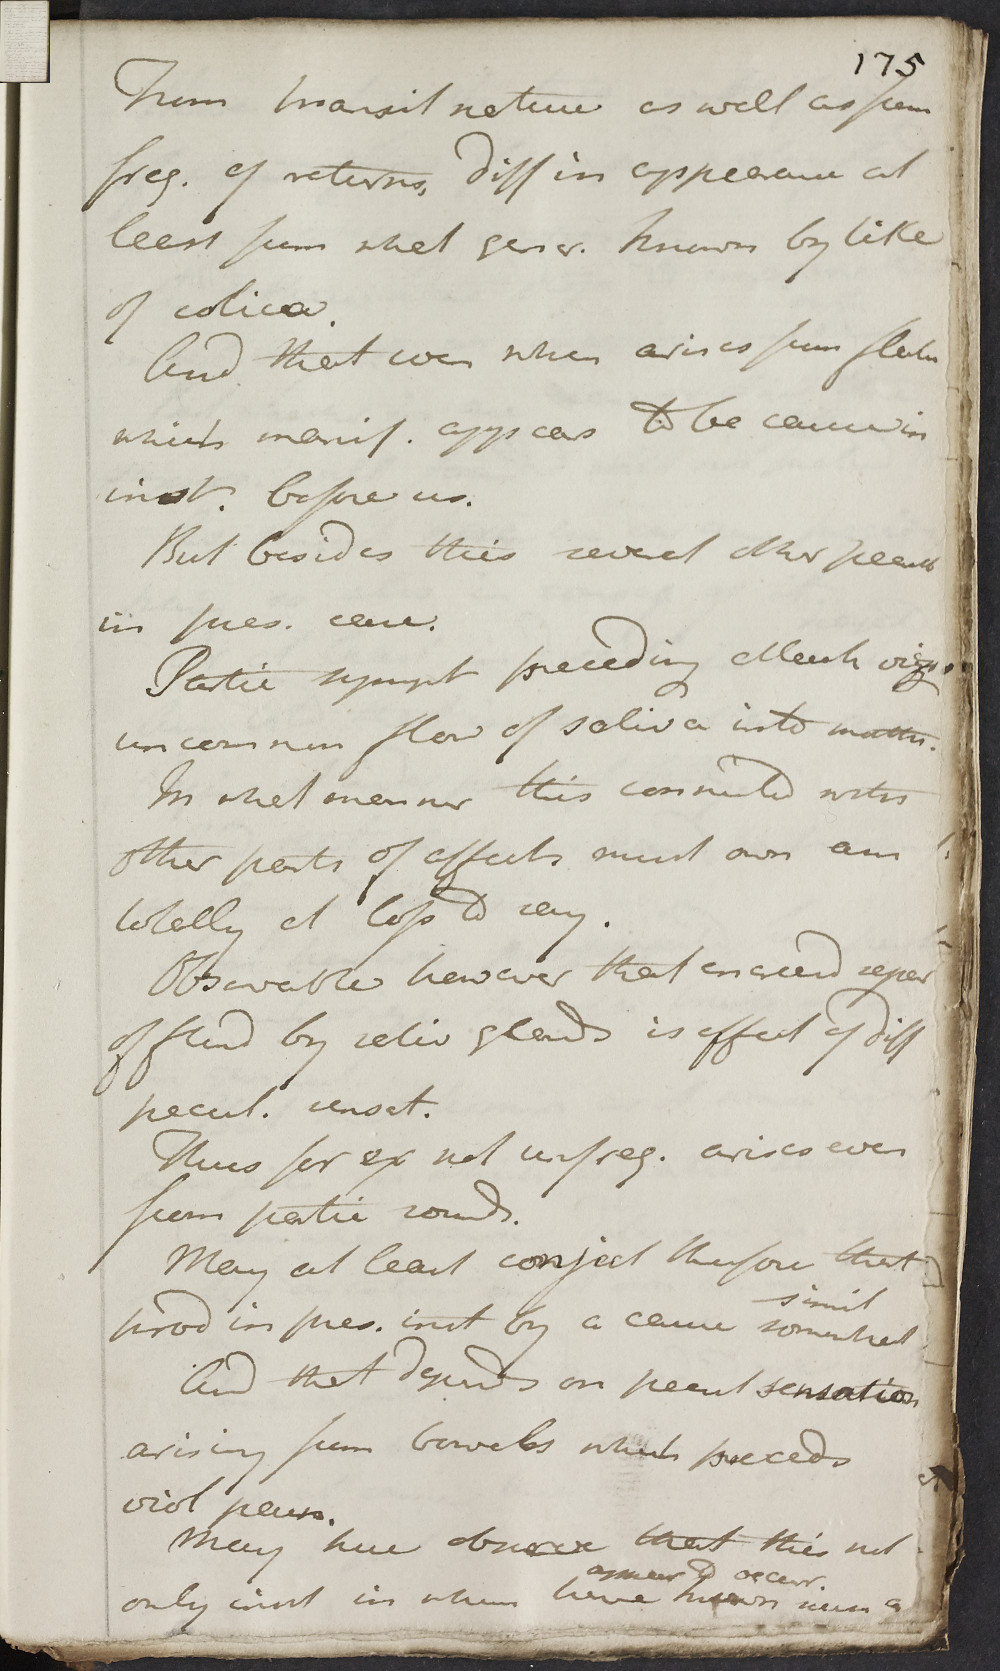 175
From transit nature as well as from
freq. of returns, diff in appearance at
least from what gener. known by title
of colica.
And that even when arises from flatus
which manif. appears to be cause in
inst. before us.
But besides this several other peculr
in pres. case.
Partic sympt preceding attack viz.
uncommon flow of saliva into mouth.
In what manner this connected with
other parts of effects must own am
totally at loss to say.
Observable however that increased separ
of fluid by saliv glands is effect of diff
pecul. sensat.
Thus for ex not unfreq. arises even
from partic sounds.
May at least conject therefore that
prod in pres. inst by a cause somewhat
simil
And that depends on pecul sensation
arising from bowels which precedes
viol pain.
May here observe that this not
only inst in whom have known
appear to occur.